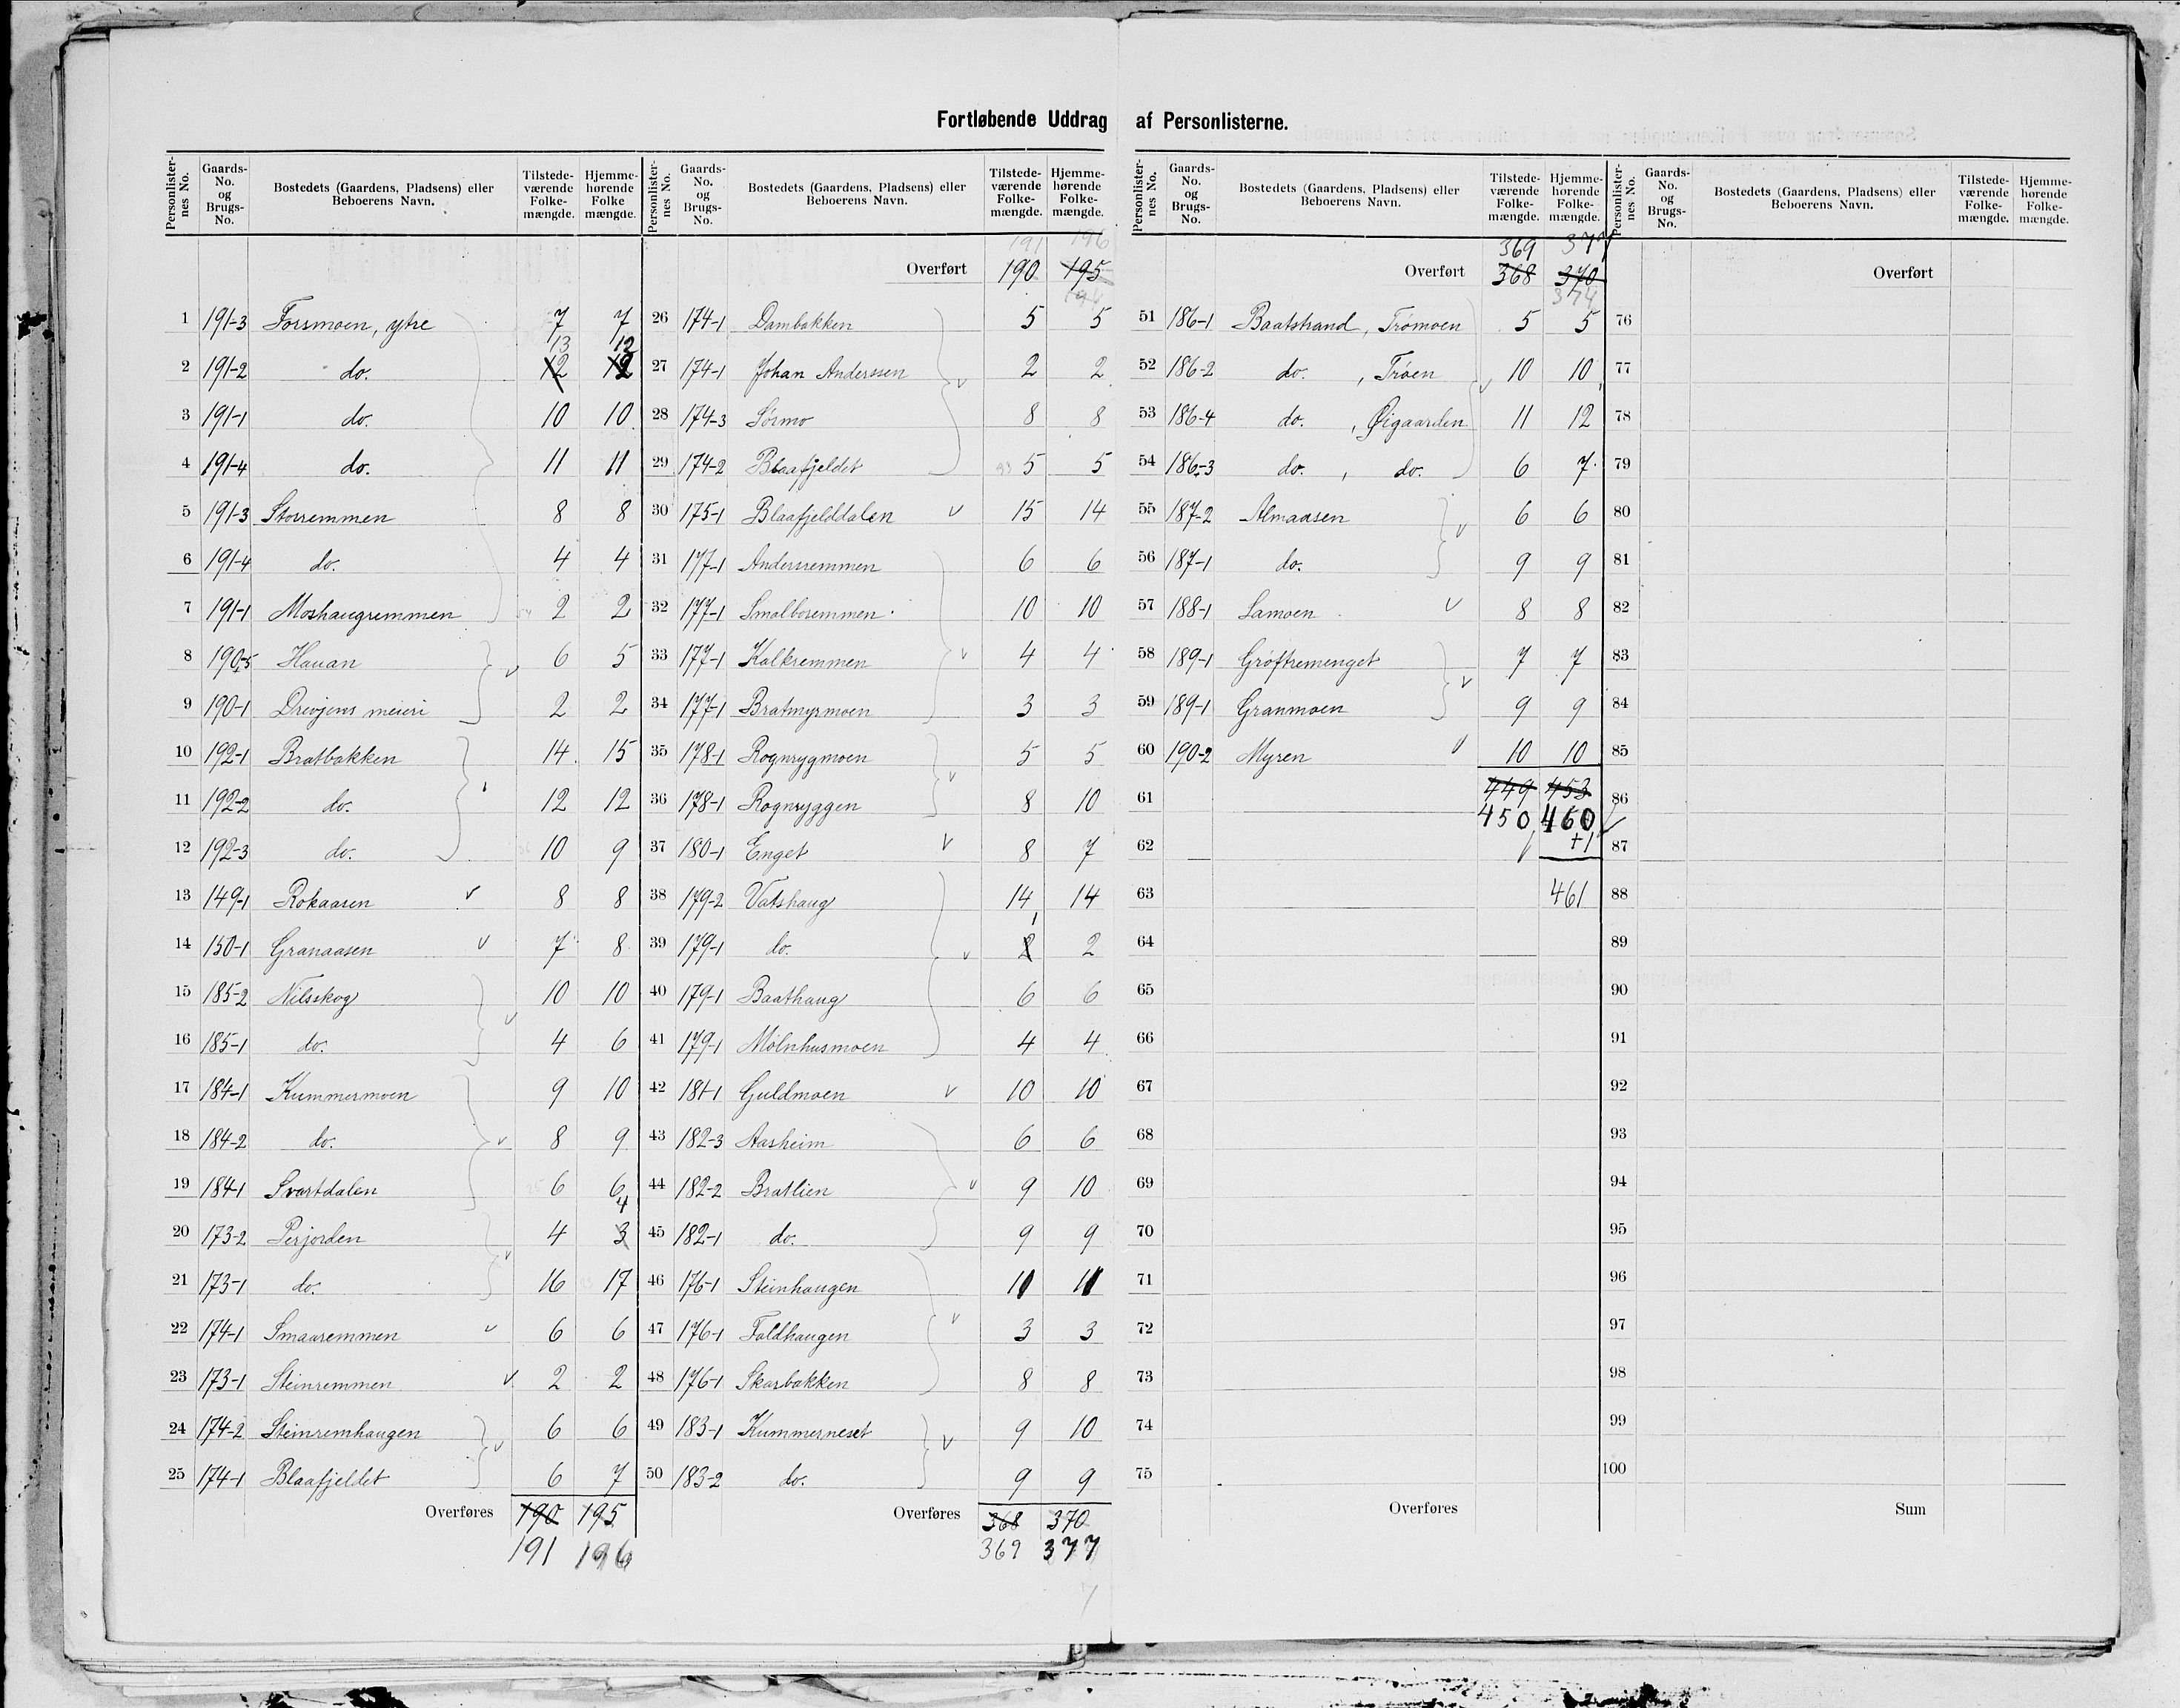 Fortløbende Uddrag af Personlisterne.
Personlister-nes No. Gaards-No. og Brugs-No. Bostedets (Gaardens, Pladsens) eller Beboerens Navn. Tilstede-værende Folke-mængde. Hjemme-hørende Folke mængde.
1 191-3 Forsmoen, ytre 7 7
13 12
2 191-2 do. 12 12
3 191-1 do. 10 10
4 191-4 do. 11 11
5 191-3 Storremmen 8 8
6 191-4 do. 4 4
7 191-1 Moshaugremmen 2 2
8 190-5 Hauan 6 5
9 190-1 Drevjens meieri 2 2
10 192-1 Bratbakken 14 15
11 192-2 do. 12 12
12 192-3 do. 10 9
13 149-1 Rokaasen v 8 8
14 150-1 Granaasen v 7 8
15 185-2 Nilsskog 10 10
16 185-1 do. 4 6
17 184-1 Kummermoen 9 10
18 184-2 do. v 8 9
19 184-1 Svartdalen 6 6
4
20 173-2 Perjorden 4 3
21 173-1 do. 16 17
22 174-1 Smaaremmen v 6 6
23 173-1 Steinremmen v 2 2
24 174-2 Steinremhaugen 6 6
25 174-1 Blaafjeldet 6 7
Overføres 190 195
191 196
Personlister-nes No. Gaards-No. og Brugs-No. Bostedets (Gaardens, Pladsens) eller Beboerens Navn. Tilstede-værende Folke-mængde. Hjemme-hørende Folke-mængde.
191 196
Overført 190 195
196
26 174-1 Dambakken 5 5
27 174-1 Johan Anderssen v 2 2
28 174-3 Sørmo 8 8
29 174-2 Blaafjeldet 5 5
30 175-1 Blaafjelddalen v 15 14
31 177-1 Andersremmen 6 6
32 177-1 Smalboremmen 10 10
33 177-1 Kalkremmen v 4 4
34 177-1 Bratmyrmoen 3 3
35 178-1 Rognrygmoen 5 5
36 178-1 Rognryggen 8 10
37 180-1 Enget v 8 7
38 179-2 Vatshaug 14 14
1
39 179-1 do. v 2 2
40 179-1 Baathaug 6 6
41 179-1 Mølnhusmoen 4 4
42 181-1 Guldmoen v 10 10
43 182-3 Aasheim 6 6
44 182-2 Bratlien v 9 10
45 182-1 do. 9 9
46 176-1 Steinhaugen 11 11
47 176-1 Foldhaugen v 3 3
48 176-1 Skarbakken 8 8
49 183-1 Kummerneset v 9 10
50 183-2 do. 9 9
Overføres 368 370
369 377
7
Personlister-nes No. Gaards-No. og Brugs-No. Bostedets (Gaardens, Pladsens) eller Beboerens Navn. Tilstede-værende Folke-mængde. Hjemme-hørende Folke-mængde.
369 377
Overført 368 370
374
51 186-1 Baatstrand, Trømoen 5 5
52 186-2 do. , Trøen v 10 10
53 186-4 do. , Øigaarden 11 12
54 186-3 do. , do. 6 7
55 187-2 Almaasen v 6 6
56 187-1 do. 9 9
57 188-1 Lamoen v 8 8
58 189-1 Grøftremenget 7 7
59 189-1 Granmoen 9 9
60 190-2 Myren v 10 10
449 453
61 450 460
62 +1
63 461
64
65
66
67
68
69
70
71
72
73
74
75
Overføres
Personlister-nes No. Gaards-No. og Brugs-No. Bostedets (Gaardens, Pladsens) eller Beboerens Navn. Tilstede-værende Folke-mængde. Hjemme-hørende Folke-mængde.
Overført
76
77
78
79
80
81
82
83
84
85
86
87
88
89
90
91
92
93
94
95
96
97
98
99
100
Sum